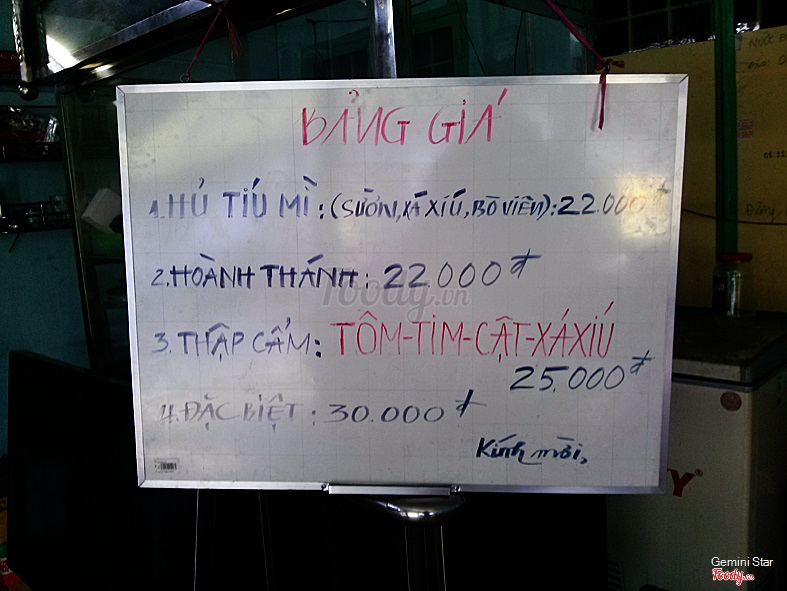 BẢNG GIÁ
1. HỦ TIÚ MÌ: (SƯỜN, XÁ XÍU, BÒ VIÊN): 22.000đ
2. HOÀNH THÁNH: 22.000đ
3. THẬP CẨM: TÔM-TIM-CẬT-XÁ XÍU
25.000đ
4. ĐẶC BIỆT: 30.000đ
Kính mời,
foody.vn
Gemini Star
Foody.vn